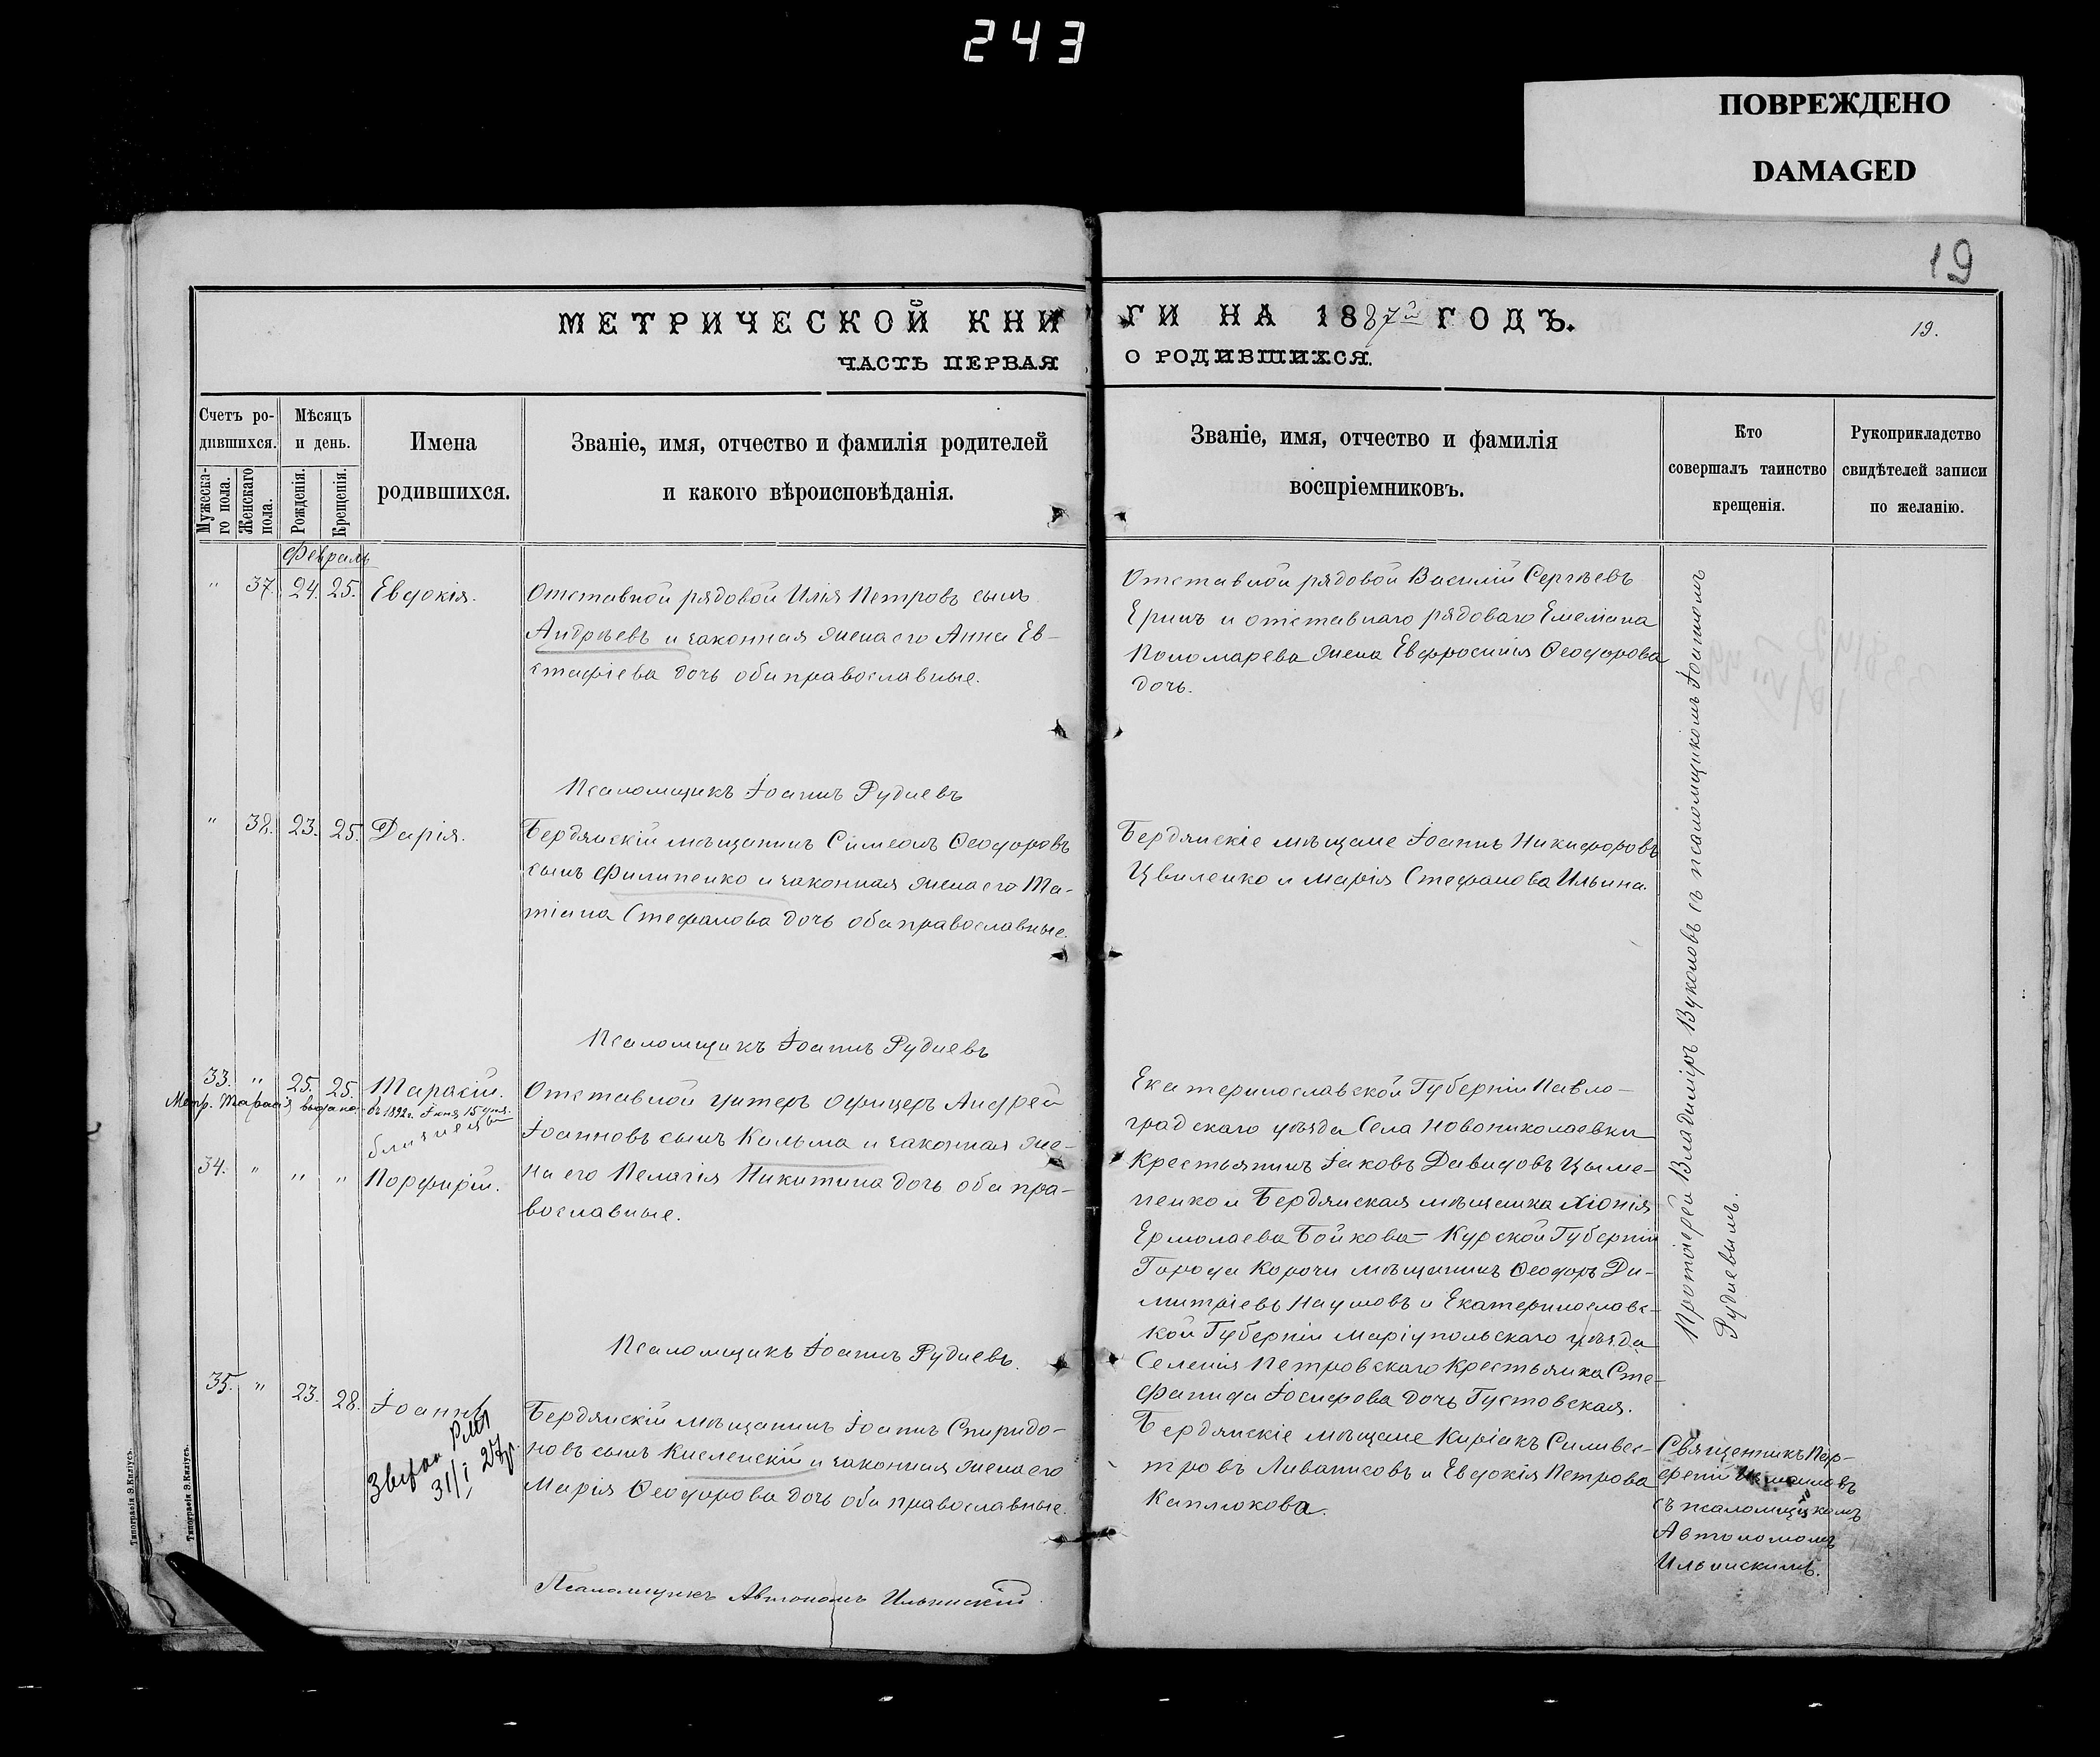 243
ПОВРЕЖДЕНО
DAMAGED
19
МЕТРИЧЕСКОЙ КНИ
ГИ НА 1887й ГОДЪ.
19.
ЧАСТЬ ПЕРВАЯ
О РОДИВШИХСЯ.
Счетъ ро-
дившихся.
Мѣсяцъ
и день.
Мужеска-
го пола.
Женскаго
пола.
Рожденія.
Крещенія.
Имена
родившихся.
Званіе, имя, отчество и фамилія родителей
и какого вѣроисповѣданія.
Званіе, имя, отчество и фамилія
воспріемниковъ.
Кто
совершалъ таинство
крещенія.
Рукоприкладство
свидѣтелей записи
по желанію.
Февраль
" 37. 24. 25. Евдокія.
Отставной рядовой Илія Петровъ сынъ
Андреевъ и законная жена его Анна Ев-
стафіева дочь оба православные.
Отставной рядовой Василій Сергѣевъ
Еринъ и отставнаго рядоваго Емеліана
Пономарева жена Евфросинія Ѳеодорова
дочь.
Псаломщикъ Іоаннъ Рудневъ
" 38. 23. 25. Дарія.
Бердянскій мѣщанинъ Симеонъ Ѳеодоровъ
сынъ Филипенко и законная жена его Та-
тіана Стефанова дочь оба православные.
Бердянскіе мѣщане Іоаннъ Никифоровъ
Цвиленко и Марія Стефанова Ильина.
Псаломщикъ Іоаннъ Рудневъ
33. " 25. 25. Тарасій.
Метр. Тарасія выдана въ 1892г. Іюня 15 дня.
близнецы
34. " " " Порфирій.
Отставной унтеръ офицеръ Андрей
Іоанновъ сынъ Кальма и законная же-
на его Пелагія Никитина дочь оба пра-
вославные.
Екатеринославской Губерніи Павло-
градскаго уѣзда Села Новониколаевки
Крестьянинъ Іаковъ Давидовъ Цыме-
ненко и Бердянская мѣщанка Хіонія
Ермолаева Бойкова - Курской Губерніи
Города Корочи мѣщанинъ Ѳеодоръ Ди-
митріевъ Наумовъ и Екатеринославс-
кой Губерніи Маріупольскаго уѣзда
Селенія Петровскаго Крестьянка Сте-
фанида Іосифова дочь Густовская.
Псаломщикъ Іоаннъ Рудневъ.
Протоіерей Владиміръ Вуколовъ съ псаломщикомъ Іоанномъ
Рудневымъ.
35. " 23. 28. Іоаннъ
31/I 27г.
Бердянскій мѣщанинъ Іоаннъ Спиридо-
новъ сынъ Кисленскій и законная жена его
Марія Ѳеодорова дочь оба православные.
Бердянскіе мѣщане Киріакъ Силивес-
тровъ Ливанисовъ и Евдокія Петрова
Каплюкова.
Священникъ Пор-
фирій
съ псаломщикомъ
Автономомъ
Ильинскимъ.
Псаломщикъ Автономъ Ильинскій
Типографія Э.Киліусъ.
Типографія Э.Киліусъ.